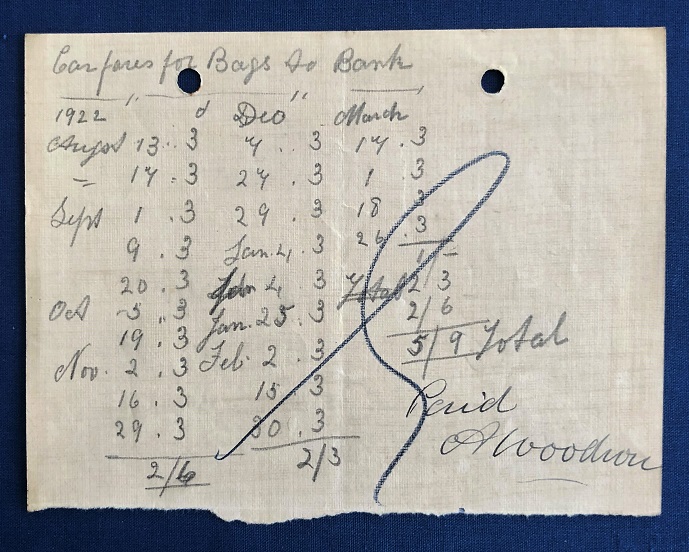 Carfares for Bags to Bank
1922 d
August 13 . 3
= 17 . 3
Sept 1 . 3
9 . 3
20 . 3
Oct 5 . 3
19 . 3
Nov. 2 . 3
16 . 3
29 . 3
2/6
Dec
7 . 3
27 . 3
29 . 3
Jan. 4 . 3
Jan 4 . 3
Jan. 25 . 3
Feb. 2 . 3
15 . 3
30 . 3
2/3
March
17 . 3
1 . 3
18 3
26 . 3
1/-
Total 2/3
2/6
5/9 Total
Paid